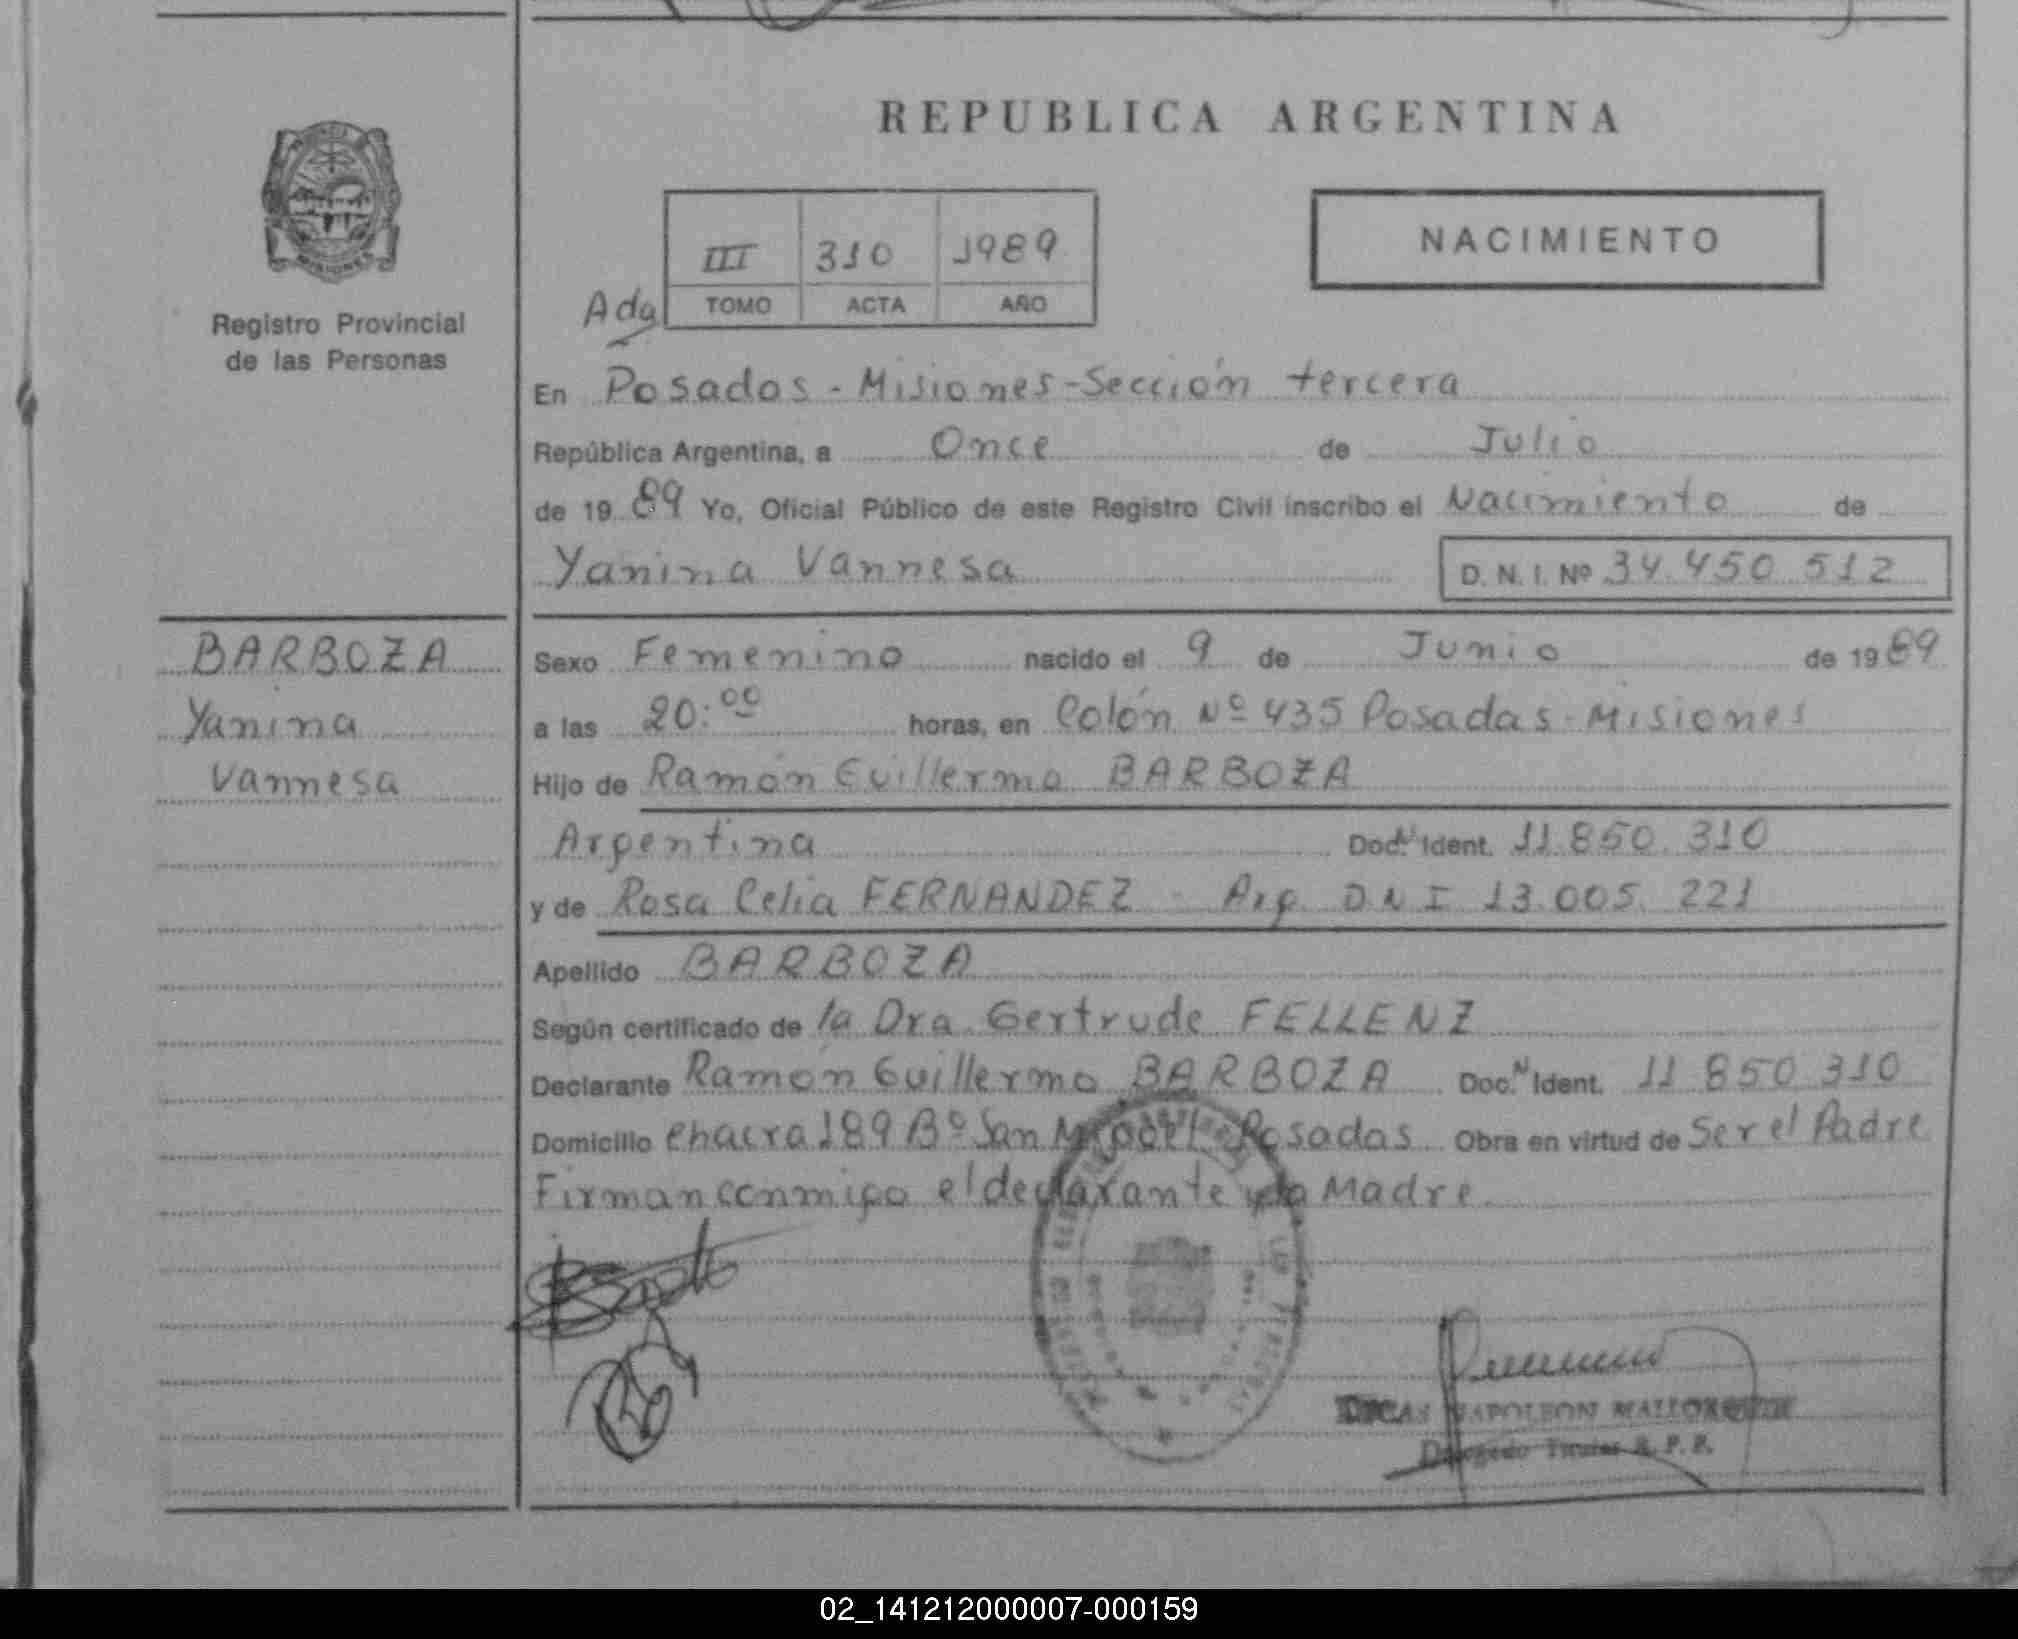 REPUBLICA ARGENTINA
MISIONES
Registro Provincial
de las Personas
III 310 1989
Ada TOMO ACTA AÑO
NACIMIENTO
En Posadas - Misiones - Sección tercera
República Argentina, a Once de Julio
de 1989 Yo, Oficial Público de este Registro Civil inscribo el Nacimiento de
Yanina Vannesa D. N. I. Nº 34.450.512
BARBOZA
Yanina
Vannesa
Sexo Femenino nacido el 9 de Junio de 1989
a las 20:00 horas, en Colón Nº 435 Posadas - Misiones
Hijo de Ramón Guillermo BARBOZA
Argentina Doc. N Ident. 11.850.310
y de Rosa Celia FERNANDEZ - Arg. D.N.I 13.005.221
Apellido BARBOZA
Según certificado de la Dra. Gertrude FELLENZ
Declarante Ramón Guillermo BARBOZA Doc. N Ident. 11 850 310
Domicilio Chacra 189 Bº San Miguel Posadas Obra en virtud de Ser el Padre
Firman conmigo el declarante y la Madre
NAPOLEON
Delegado Titular R. P. P.
02_141212000007-000159